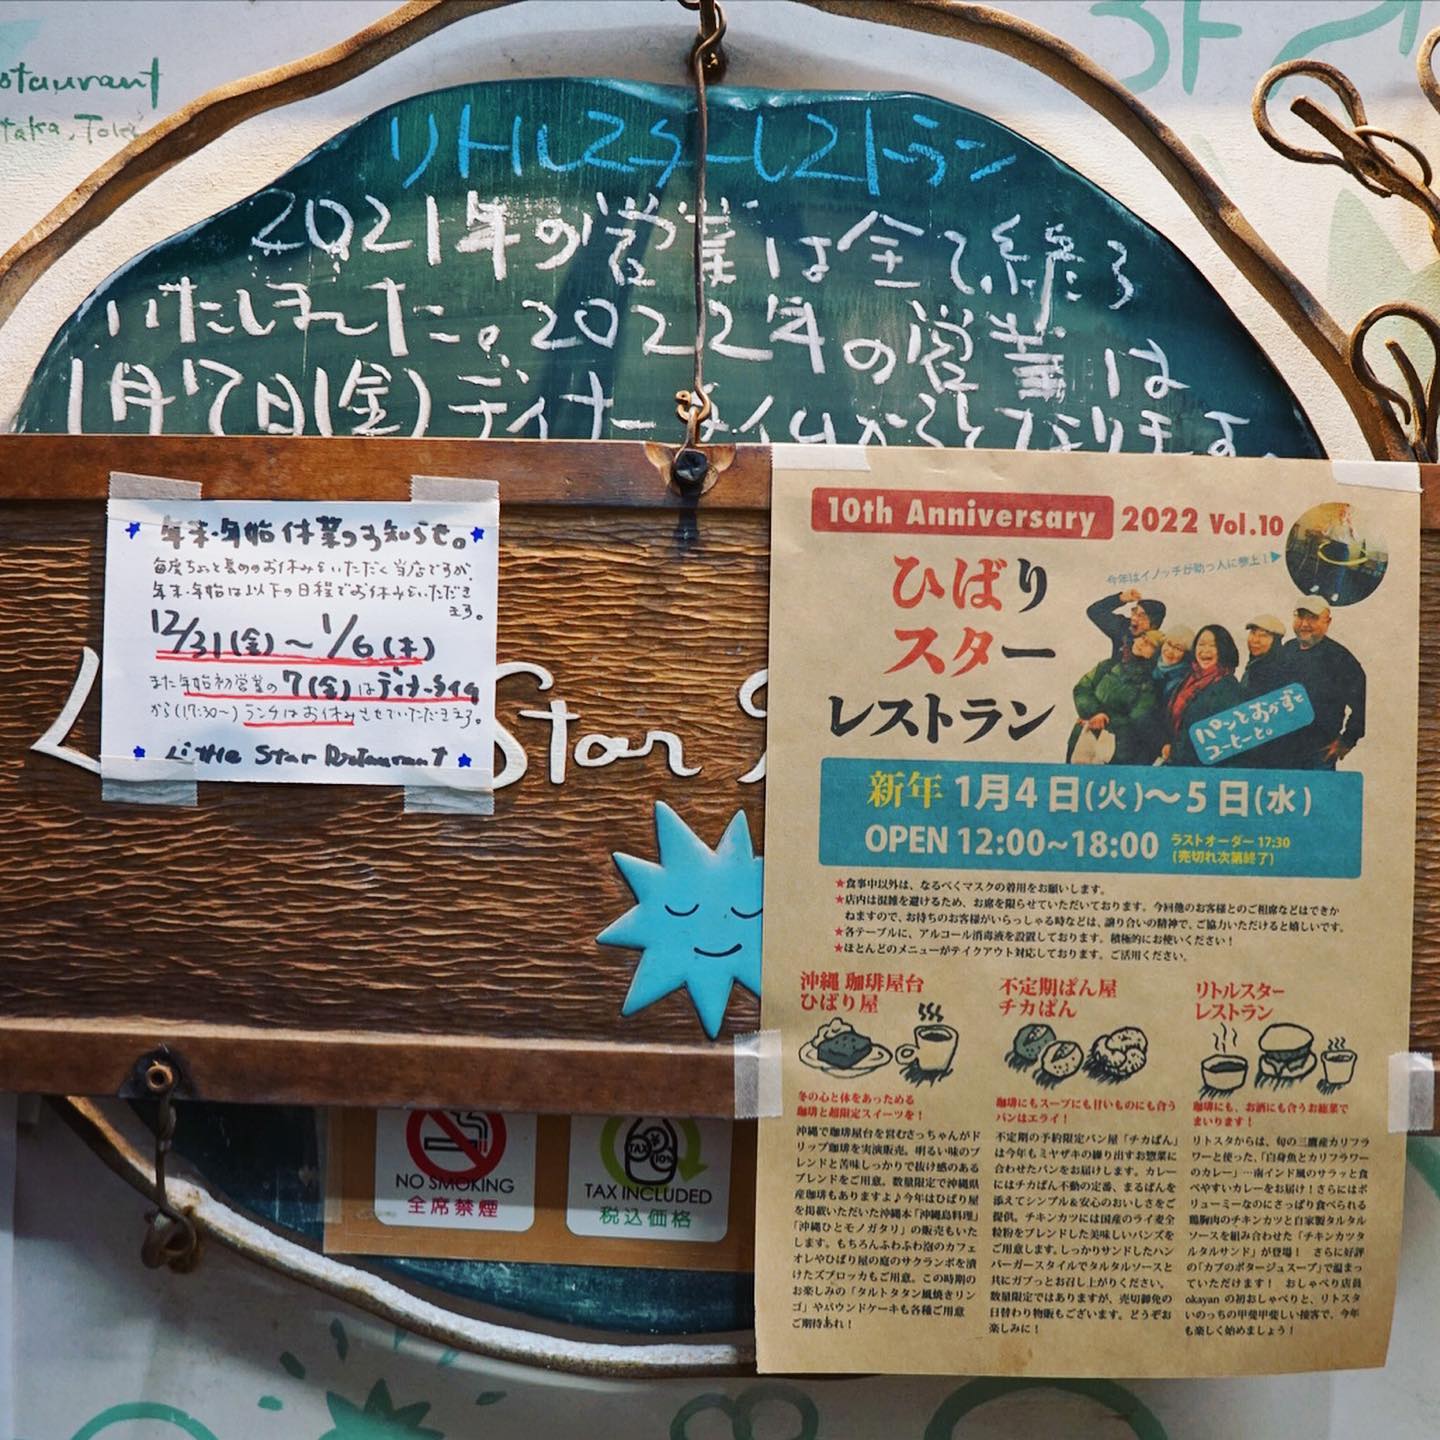 リトルスターレストラン
2021年の営業は全て終了
いたしました。2022年の営業は
1月7日(金)ディナータイムからとなります。
年末・年始休業のお知らせ。
毎度ちょっと長めのお休みをいただく当店ですが、
年末・年始は以下の日程でお休みをいただき
ます。
12/31(金)〜1/6(木)
また年始初営業の7(金)はディナータイム
から(17:30〜)ランチはお休みさせていただきます。
Little Star Restaurant
Star
10th Anniversary 2022 Vol.10
今年はイノッチが助っ人に参上!
ひばり
スター
レストラン
パンとおかずと
コーヒーと。
新年 1月4日(火)〜5日(水)
OPEN 12:00~18:00 ラストオーダー 17:30
(売切れ次第終了)
★食事中以外は、なるべくマスクの着用をお願いします。
★店内は混雑を避けるため、お席を限らせていただいております。今回他のお客様とのご相席などはできか
ねますので、お待ちのお客様がいらっしゃる時などは、譲り合いの精神で、ご協力いただけると嬉しいです。
★各テーブルに、アルコール消毒液を設置しております。積極的にお使いください!
★ほとんどのメニューがテイクアウト対応しております。ご活用ください。
沖縄 珈琲屋台
ひばり屋
冬の心と体をあっためる
珈琲と超限定スイーツを!
沖縄で珈琲屋台を営むさっちゃんがド
リップ珈琲を実演販売。明るい味のブ
レンドと苦味しっかりで抜け感のある
ブレンドをご用意。数量限定で沖縄県
産珈琲もありますよ♪今年はひばり屋
を掲載いただいた沖縄本「沖縄島料理」
「沖縄ひとモノガタリ」の販売もいた
します。もちろんふわふわ泡のカフェ
オレやひばり屋の庭のサクランボを漬
けたズブロッカもご用意。この時期の
お楽しみの「タルトタタン風焼きリン
ゴ」やパウンドケーキも各種ご用意
ご期待あれ!
不定期ぱん屋
チカぱん
珈琲にもスープにも甘いものにも合う
パンはエライ!
不定期の予約限定パン屋「チカぱん」
は今年もミヤザキの繰り出すお惣菜に
合わせたパンをお届けします。カレー
にはチカぱん不動の定番、まるぱんを
添えてシンプル&安心のおいしさをご
提供。チキンカツには国産のライ麦全
粒粉をブレンドした美味しいバンズを
ご用意します。しっかりサンドしたハン
バーガースタイルでタルタルソースと
共にガブっとお召し上がりください。
数量限定ではありますが、売切御免の
日替わり物販もございます。どうぞお
楽しみに!
リトルスター
レストラン
珈琲にも、お酒にも合うお総菜で
まいります!
リトスタからは、旬の三鷹産カリフラ
ワーと使った、「白身魚とカリフラワー
のカレー」…南インド風のサラッと食
べやすいカレーをお届け!さらにはボ
リューミーなのにさっぱり食べられる
鶏胸肉のチキンカツと自家製タルタル
ソースを組み合わせた「チキンカツタ
ルタルサンド」が登場! さらに好評
の「カブのポタージュスープ」で温まっ
ていただけます! おしゃべり店員
okayan の初おしゃべりと、リトスタ
いのっちの甲斐甲斐しい接客で、今年
も楽しく始めましょう!
NO SMOKING
全席禁煙
TAX INCLUDED
税込価格